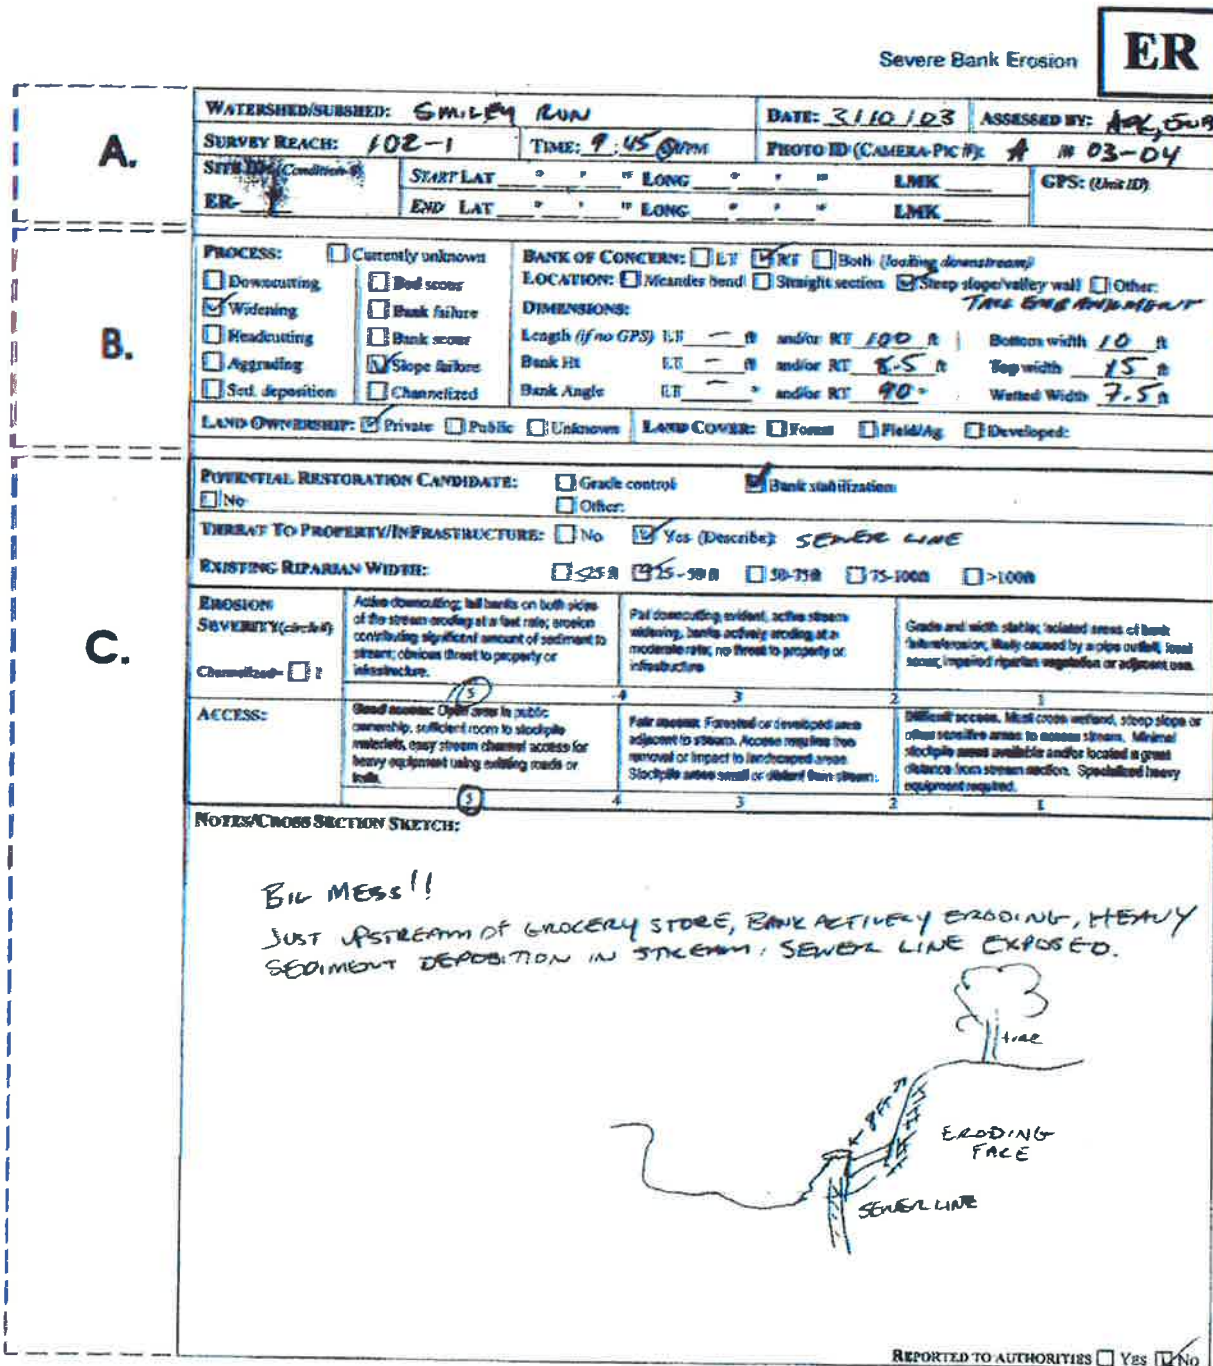 Severe Bank Erosion
ER
A.
WATERSHED/SUBSHED: SMILEY RUN DATE: 3/10/03 ASSESSED BY:
SURVEY REACH: 102-1 TIME: 9:45 AM/PM PHOTO ID (CAMERA-PIC #): A # 03-04
SITE ID: (Condition-#) START LAT ° ' " LONG ° ' " LMK GPS: (Unit ID)
ER- END LAT ° ' " LONG ° ' " LMK
B.
PROCESS: Currently unknown BANK OF CONCERN: LT RT Both (looking downstream)
Downcutting Bed scour LOCATION: Meander bend Straight section Steep slope/valley wall Other:
TALL EMBANKMENT
Widening Bank failure DIMENSIONS:
Headcutting Bank scour Length (if no GPS) LT – ft and/or RT 100 ft Bottom width 10 ft
Aggrading Slope failure Bank Ht LT – ft and/or RT 8.5 ft Top width 15 ft
Sed. deposition Channelized Bank Angle LT – ° and/or RT 90 ° Wetted Width 7.5 ft
LAND OWNERSHIP: Private Public Unknown LAND COVER: Forest Field/Ag Developed:
C.
POTENTIAL RESTORATION CANDIDATE: Grade control Bank stabilization
No Other:
THREAT TO PROPERTY/INFRASTRUCTURE: No Yes (Describe): SEWER LINE
EXISTING RIPARIAN WIDTH: ≤25 ft 25-50 ft 50-75ft 75-100ft >100ft
EROSION
SEVERITY(circle#)
Channelized= 1
Active downcutting; tall banks on both sides
of the stream eroding at a fast rate; erosion
contributing significant amount of sediment to
stream; obvious threat to property or
infrastructure.
Pat downcutting evident, active stream
widening, banks actively eroding at a
moderate rate; no threat to property or
infrastructure
Grade and width stable; isolated areas of bank
failure/erosion; likely caused by a pipe outfall, local
scour, impaired riparian vegetation or adjacent use.
5 4 3 2 1
ACCESS:
Good access: Open area in public
ownership, sufficient room to stockpile
materials, easy stream channel access for
heavy equipment using existing roads or
trails.
Fair access: Forested or developed area
adjacent to stream. Access requires tree
removal or impact to landscaped areas.
Stockpile areas small or distant from stream.
Difficult access. Must cross wetland, steep slope or
other sensitive areas to access stream. Minimal
stockpile areas available and/or located a great
distance from stream section. Specialized heavy
equipment required.
5 4 3 2 1
NOTES/CROSS SECTION SKETCH:
BIG MESS!!
JUST UPSTREAM OF GROCERY STORE, BANK ACTIVELY ERODING, HEAVY
SEDIMENT DEPOSITION IN STREAM, SEWER LINE EXPOSED.
tree
8 FT
ERODING
FACE
SEWER LINE
REPORTED TO AUTHORITIES YES NO